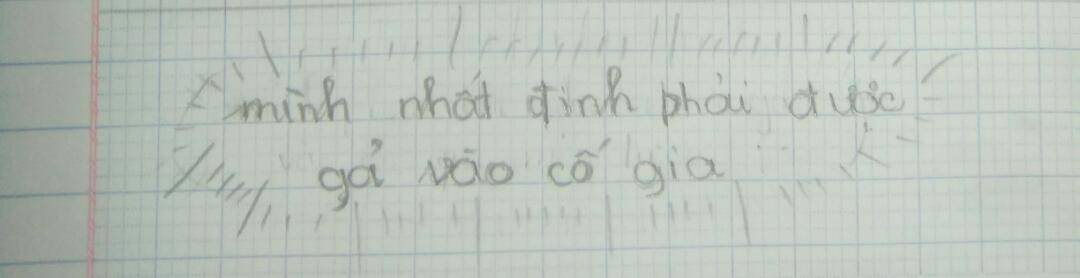 mình nhất định phải được
gả vào cố gia